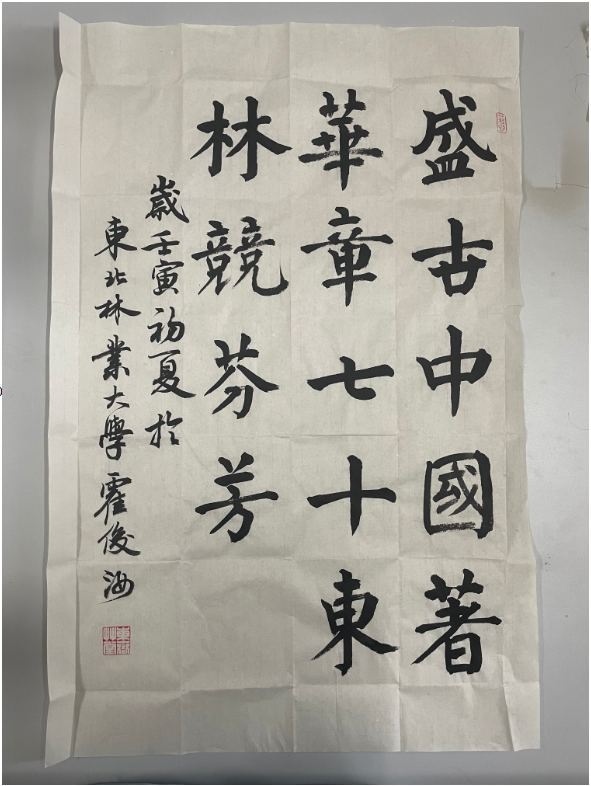 盛古中國著
華章七十東
林競芬芳
歲壬寅初夏於
東北林業大學霍俊海